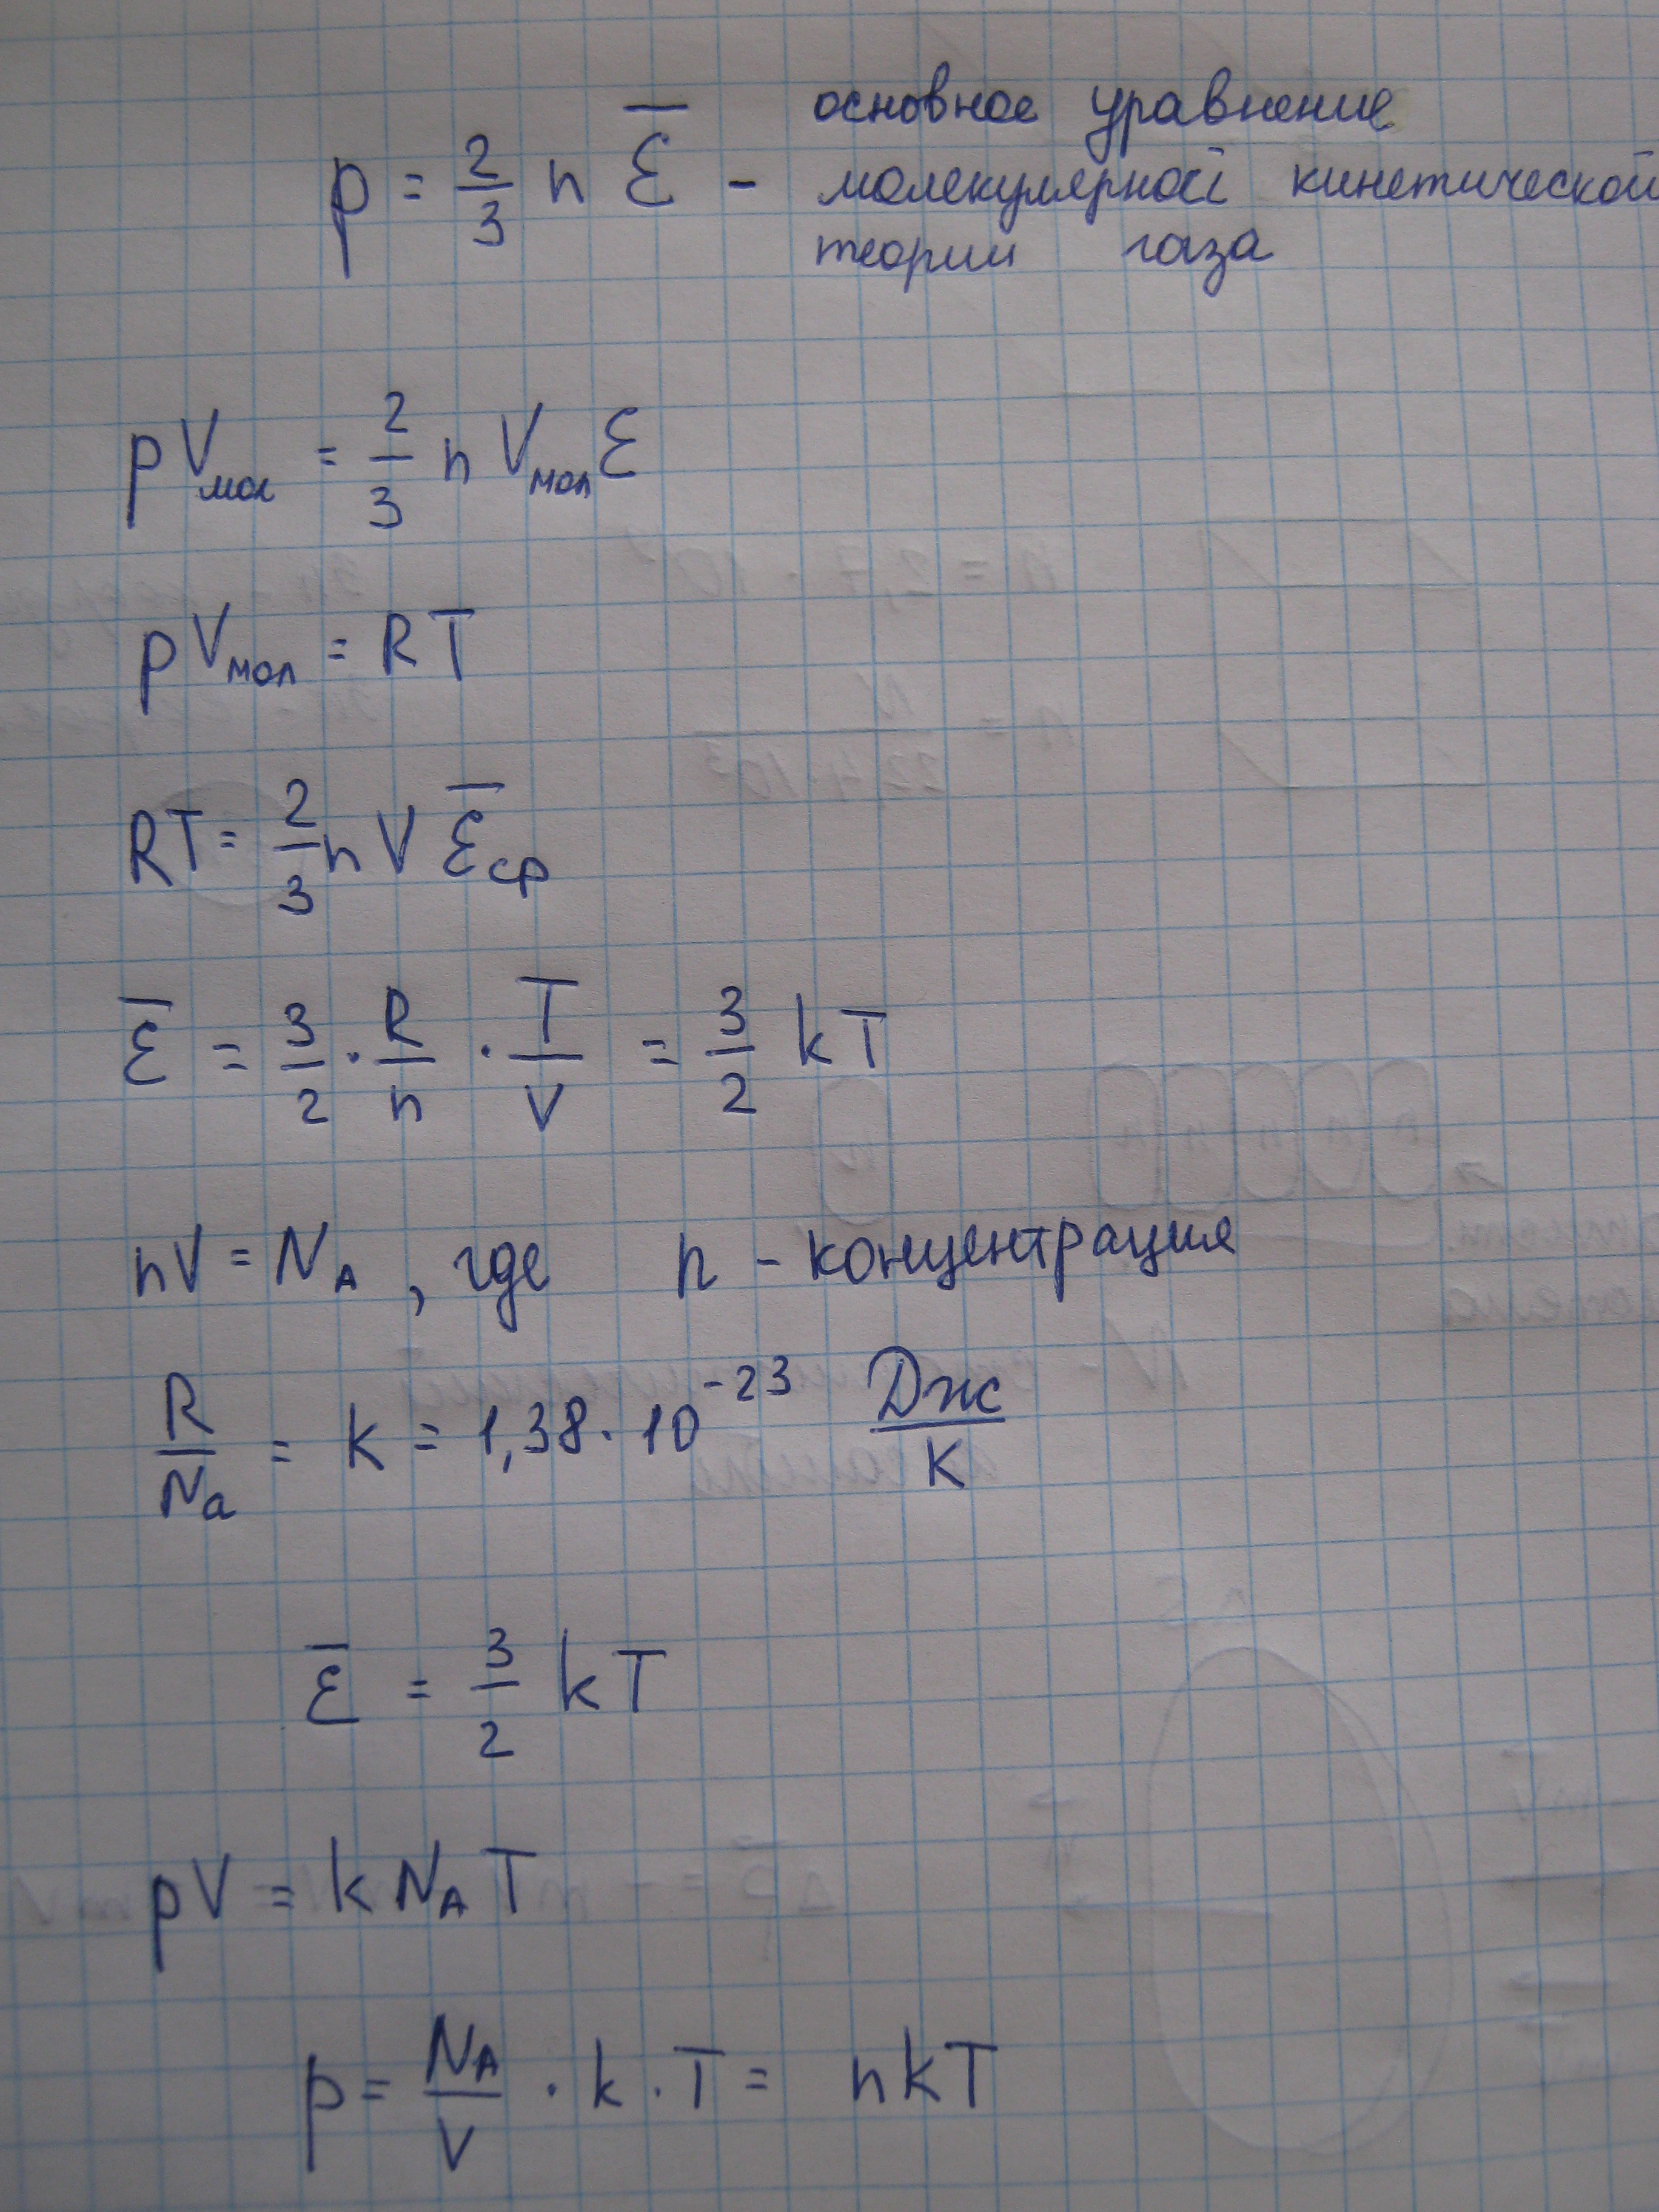 p = 2/3 n ε̅ - основное уравнение
молекулярной кинетической
теории газа
pVмол = 2/3 n Vмол ε
pVмол = RT
RT = 2/3 n V ε̅ср
ε̅ = 3/2 · R/n · T/V = 3/2 kT
nV = NА, где n - концентрация
R/Na = k = 1,38 · 10⁻²³ Дж/К
ε̅ = 3/2 kT
pV = k NА T
p = NА/V · k · T = nkT